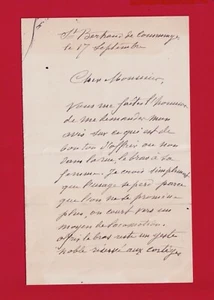 St Bertrand de Comminges
le 17 Septembre
Cher Monsieur,
Vous me faites l'honneur
de me demander mon
avis sur ce qui est de
bon ton d'offrir ou non
dans la rue, le bras à la
femme. Je crois simplement
que l'usage se perd parce
que l'on ne se promène
plus, on court vers un
moyen de locomotion
offrir le bras reste un geste
noble réservé aux cortèges